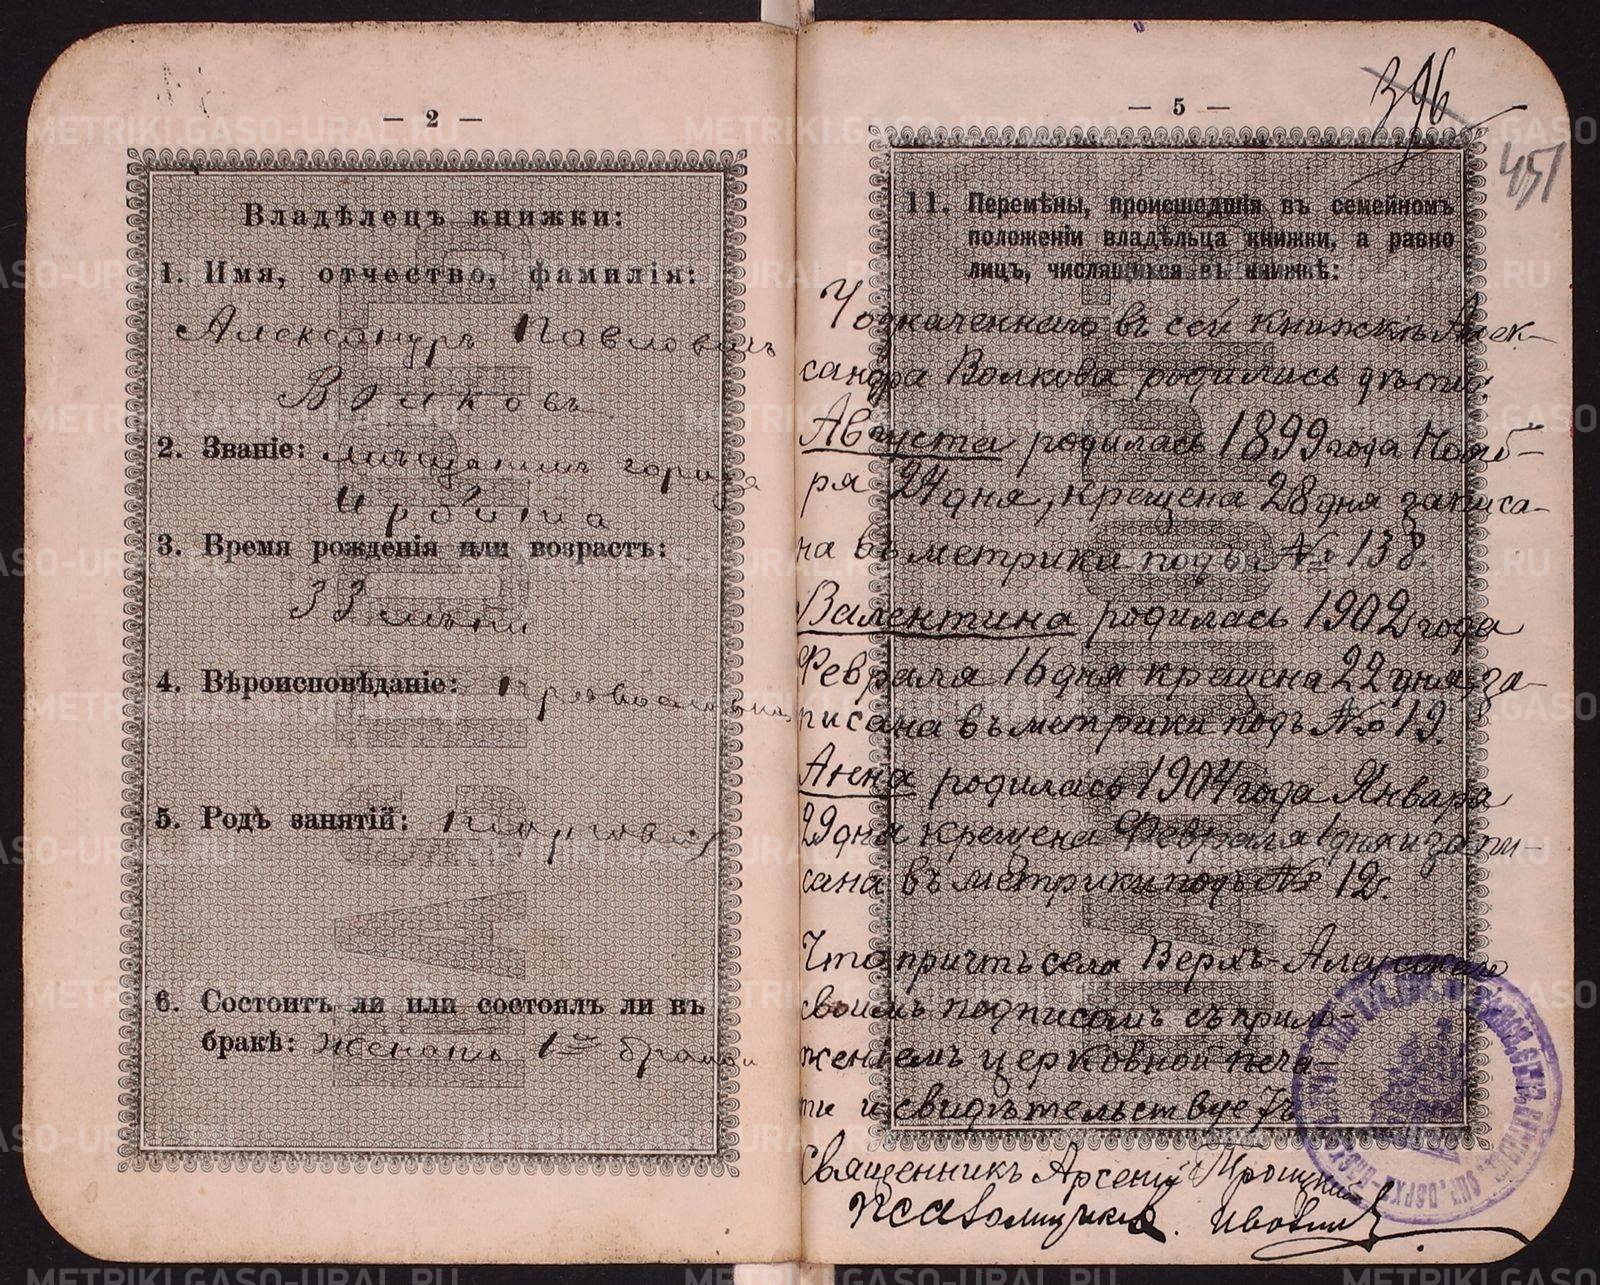 — 2 —
Владѣлецъ книжки:
1. Имя, отчество, фамилія:
Александръ Павловичъ
Волковъ
2. Званіе: мѣщанинъ города
Ирбита
3. Время рожденія или возрастъ:
33 лѣтъ
4. Вѣроисповѣданіе: православна
5. Родъ занятій: торговля
6. Состоитъ ли или состоялъ ли въ
бракѣ: женатъ 1мъ бракомъ
— 5 —
396
451
11. Перемѣны, происшедшія въ семейномъ
положеніи владѣльца книжки, а равно
лицъ, числящихся въ книжкѣ:
У означеннаго въ сей книжкѣ Алек-
сандра Волкова родилась дѣти:
Августа родилась 1899 года Нояб-
ря 24 дня, крещена 28 дня записа-
на въ метрики подъ № 138.
Валентина родилась 1902 года
Февраля 16 дня крещена 22 дня, за-
писана въ метрики подъ № 19.
Анна родилась 1904 года Января
29 дня крещена Февраля 1 дня и запи-
сана въ метрики подъ № 12.
Что причтъ села Верхъ-
своимъ подписомъ съ прило-
женіемъ церковной печа-
ти и свидѣтельствуетъ
Священникъ Арсеній Троицкій
Псаломщикъ
METRIKI.GASO-URAL.RU